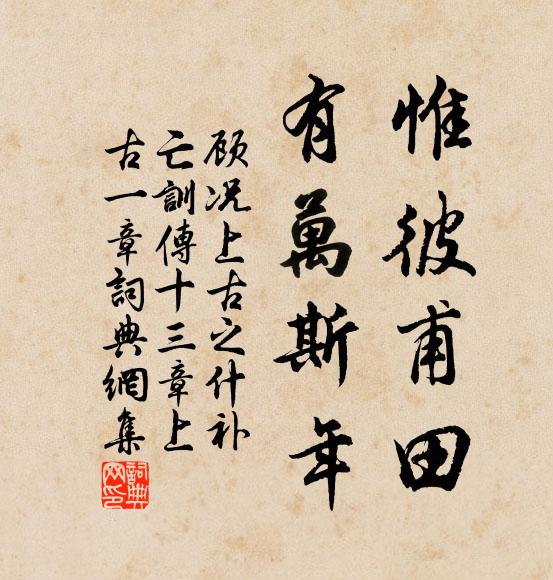 惟彼甫田
有萬斯年
顾况上古之什补
亡訓傳十三章上
古一章詞典網集
詞典網印